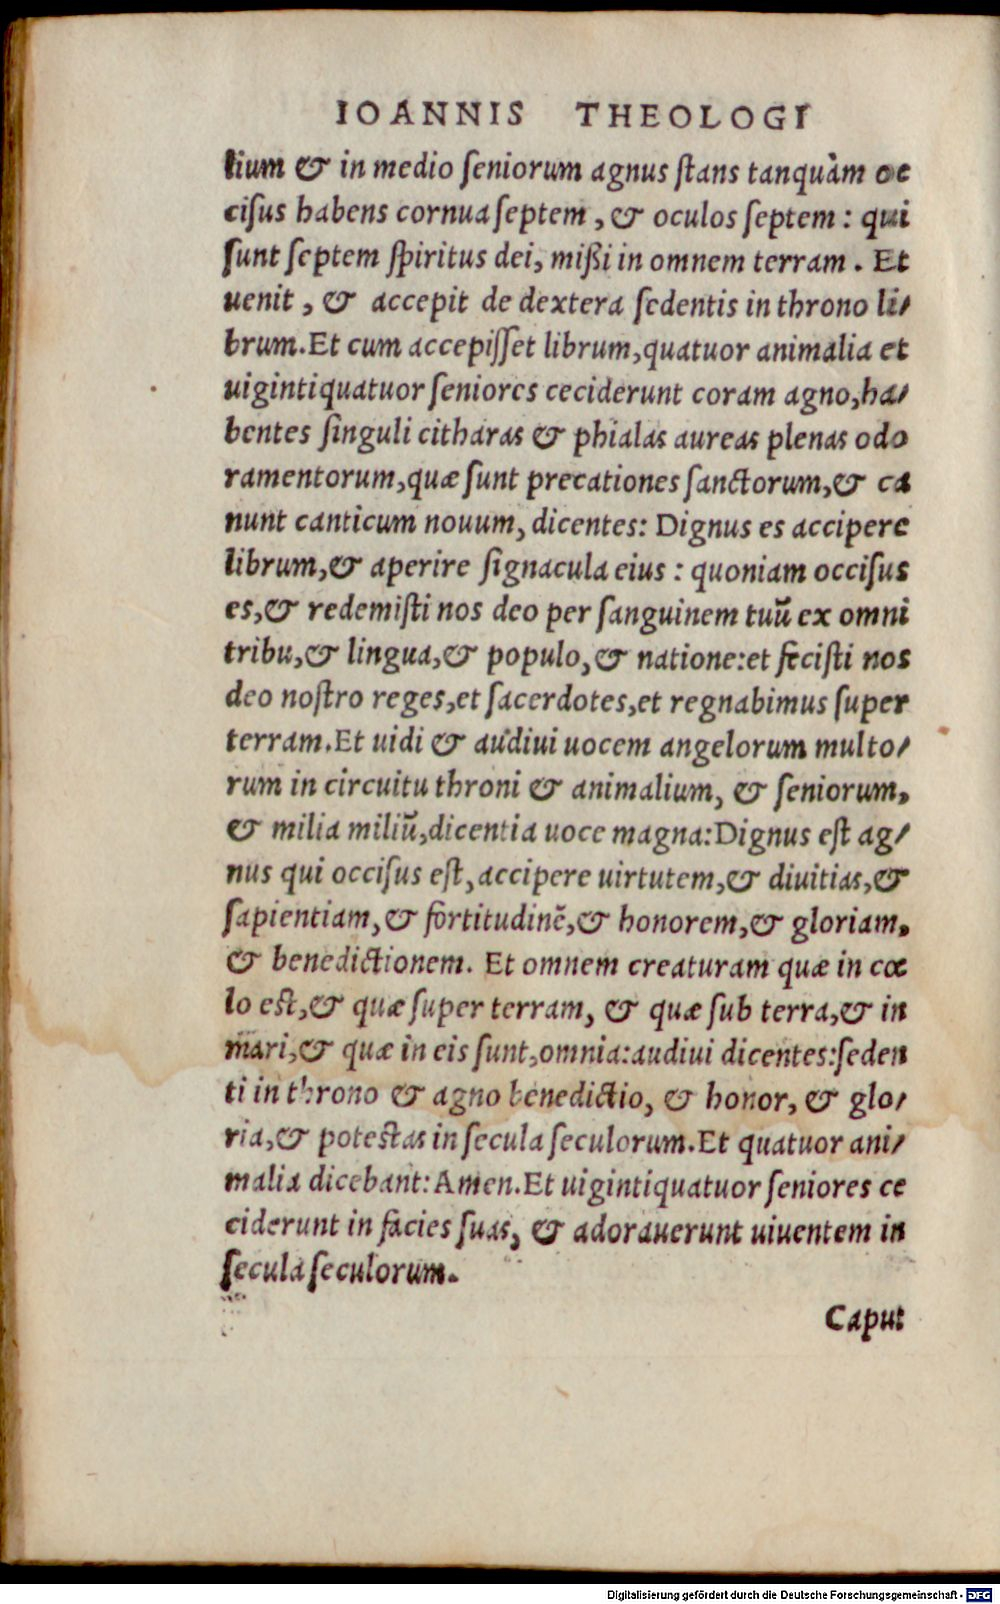 IOANNIS THEOLOGI
lium & in medio ſeniorum agnus ſtans tanquàm oc
ciſus habens cornua ſeptem, & oculos ſeptem: qui
ſunt ſeptem ſpiritus dei, miſſi in omnem terram. Et
uenit, & accepit de dextera ſedentis in throno li/
brum. Et cum accepiſſet librum, quatuor animalia et
uigintiquatuor ſeniores ceciderunt coram agno, ha/
bentes ſinguli citharas & phialas aureas plenas odo
ramentorum, quæ ſunt precationes ſanctorum, & ca
nunt canticum nouum, dicentes: Dignus es accipere
librum, & aperire ſignacula eius: quoniam occiſus
es, & redemiſti nos deo per ſanguinem tuū ex omni
tribu, & lingua, & populo, & natione: et feciſti nos
deo noſtro reges, et ſacerdotes, et regnabimus ſuper
terram. Et uidi & audiui uocem angelorum multo/
rum in circuitu throni & animalium, & ſeniorum,
& milia miliū, dicentia uoce magna: Dignus eſt ag/
nus qui occiſus eſt, accipere uirtutem, & diuitias, &
ſapientiam, & fortitudinē, & honorem, & gloriam,
& benedictionem. Et omnem creaturam quæ in cœ
lo eſt, & quæ ſuper terram, & quæ ſub terra, & in
mari, & quæ in eis ſunt, omnia: audiui dicentes: ſeden
ti in throno & agno benedictio, & honor, & glo/
ria, & poteſtas in ſecula ſeculorum. Et quatuor ani/
malia dicebant: Amen. Et uigintiquatuor ſeniores ce
ciderunt in facies ſuas, & adorauerunt uiuentem in
ſecula ſeculorum.
Caput
Digitalisierung gefördert durch die Deutsche Forschungsgemeinschaft - DFG